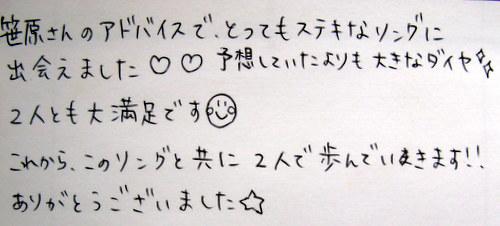 笹原さんのアドバイスで、とってもステキなリングに
出会えました♡♡ 予想していたよりも大きなダイヤ☆☆
2人とも大満足です☺
これから、このリングと共に2人で歩んでいきます!!
ありがとうございました☆